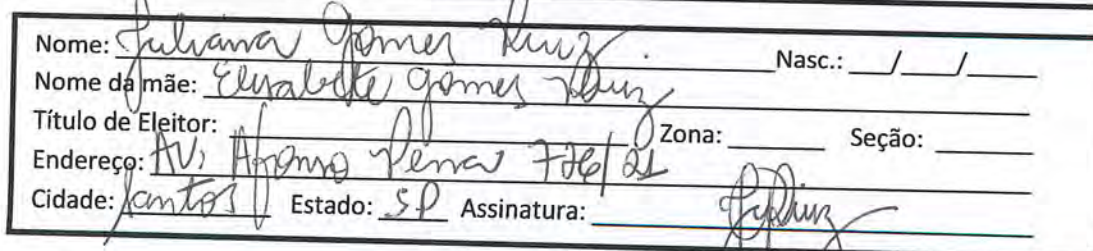 Nome: Juliana Gomes Ruiz. Nasc.: __/__/__
Nome da mãe: Elisabete Gomes Ruiz
Título de Eleitor: Zona: Seção:
Endereço: AV. Afonso Pena 776/21
Cidade: Santos Estado: SP Assinatura: